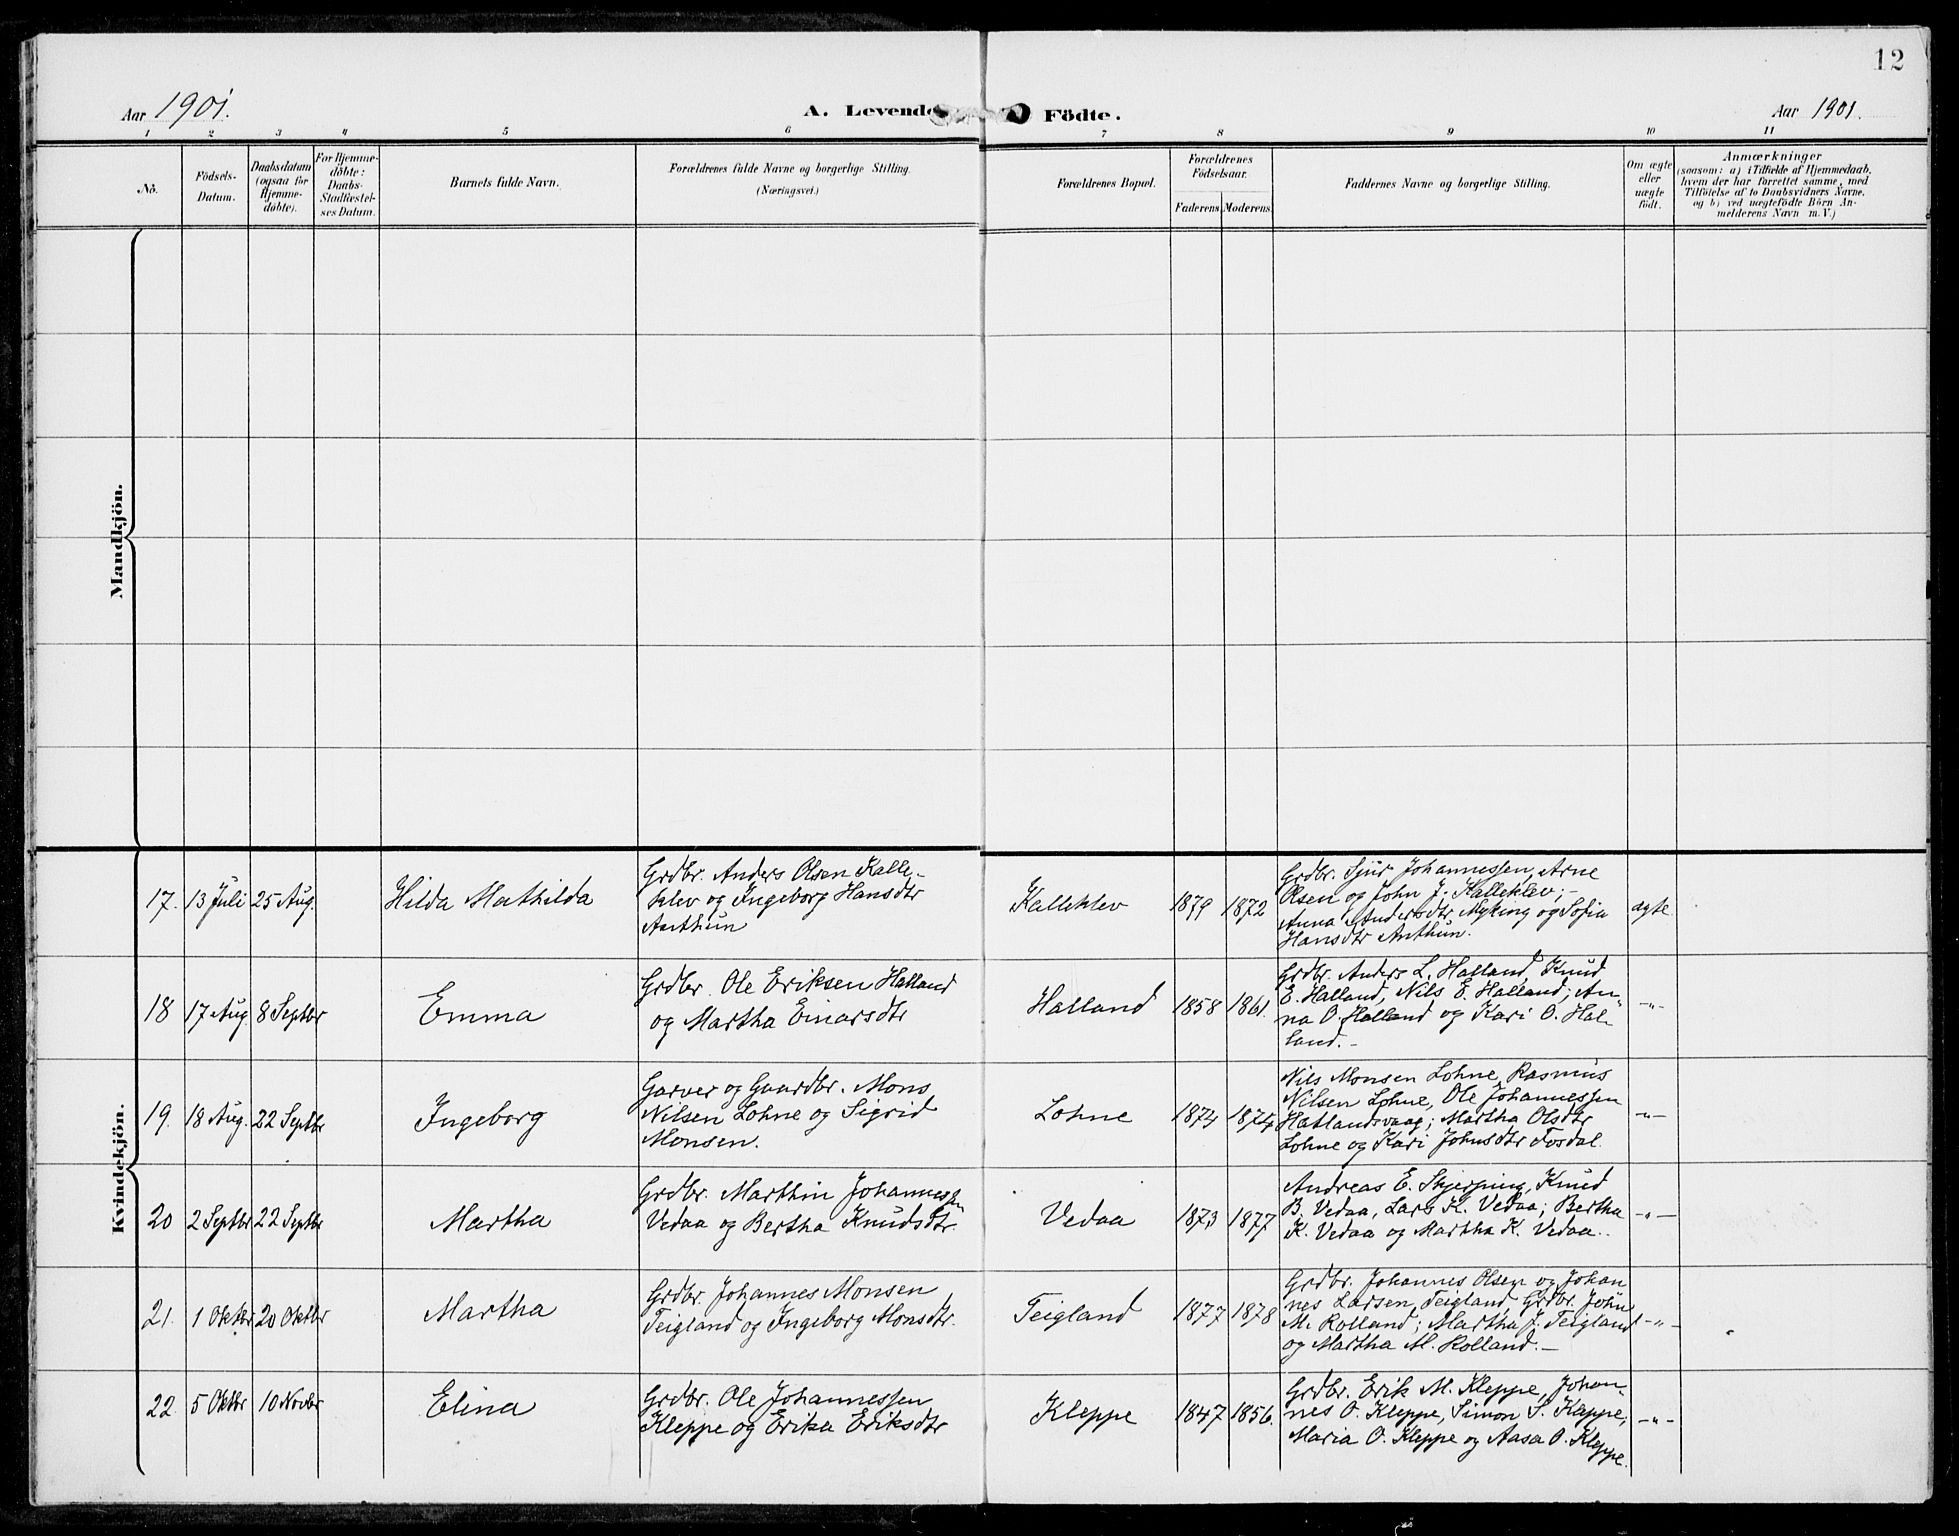 12
Aar 1901.
A. Levende Födte.
Aar 1901.
1 2 3 4 5 6 7 8 9 10 11
No.
Födsels-
Datum.
Daabsdatum
(ogsaa for
Hjemme-
döbte).
For Hjemme-
döbte:
Daabs-
Stadfæstel-
ses Datum.
Barnets fulde Navn.
Forældrenes fulde Navne og borgerlige Stilling.
(Næringsvei.)
Forældrenes Bopæl.
Forældrenes
Födselsaar.
Faderens Moderens
Faddernes Navne og borgerlige Stilling.
Om ægte
eller
uægte
födt.
Anmærkninger
(saasom: a) i Tilfælde af Hjemmedaab,
hvem der har forrettet samme, med
Tilföielse af to Daabsvidners Navne.
og b) ved uægtefödte Börn An-
melderens Navn m. V.)
Mandkjön.
Kvindekjön.
17. 13 Juli 25 Aug.
Hilda Mathilda
Grdbr. Anders Olsen Kalle-
klev og Ingeborg Hansdtr
Anthun
Kalleklev
1879 1872
Grdbr. Sjur Johannessen, Arne
Olsen og John J. Kalleklev;-
Anna Andersdtr. Myking og Sofia
Hansdtr Anthun.
ægte
18 17 Aug. 8 Septbr
Emma
Grdbr. Ole Eriksen Halland
og Martha Einarsdtr
Halland
1858 1861.
Grdbr. Anders L. Halland, Knud
E. Halland, Nils E. Halland; An-
na O. Halland og Kari O. Hal-
land.-
-"-
19. 18 Aug. 22 Septbr
Ingeborg
Garver og Gaardbr. Mons
Nilsen Lohne og Sigrid
Monsen.
Lohne
1874 1874
Nils Monsen Lohne, Rasmus
Nilsen Lohne, Ole Johannessen
Hatlandsvaag; Martha Olsdtr
Lohne og Kari Johnsdtr Fosdal.
-"-
20 2 Septbr 22 Septbr
Martha
Grdbr. Marthin Johannessen
Vedaa og Bertha Knudsdtr.
Vedaa
1873 1877
Andreas E. Skjerping, Knud
B. Vedaa, Lars K. Vedaa; Bertha
K. Vedaa og Martha K. Vedaa..
-"-
21. 1 Oktbr 20 Oktbr
Martha
Grdbr. Johannes Monsen
Teigland og Ingeborg Monsdtr.
Teigland
1877 1878
Grdbr. Johannes Olsen og Johan
nes Larsen, Teigland, Grdbr. John
M. Rolland; Martha J. Teigland
og Martha M. Rolland.-
-"-
22 5 Oktbr 10 Novbr
Elina
Grdbr. Ole Johannessen
Kleppe og Erika Eriksdtr
Kleppe
1847 1856.
Grdbr. Erik M. Kleppe, Johan-
nes O. Kleppe, Simon S. Kleppe;
Maria O. Kleppe og Aasa O. Kleppe.
-"-